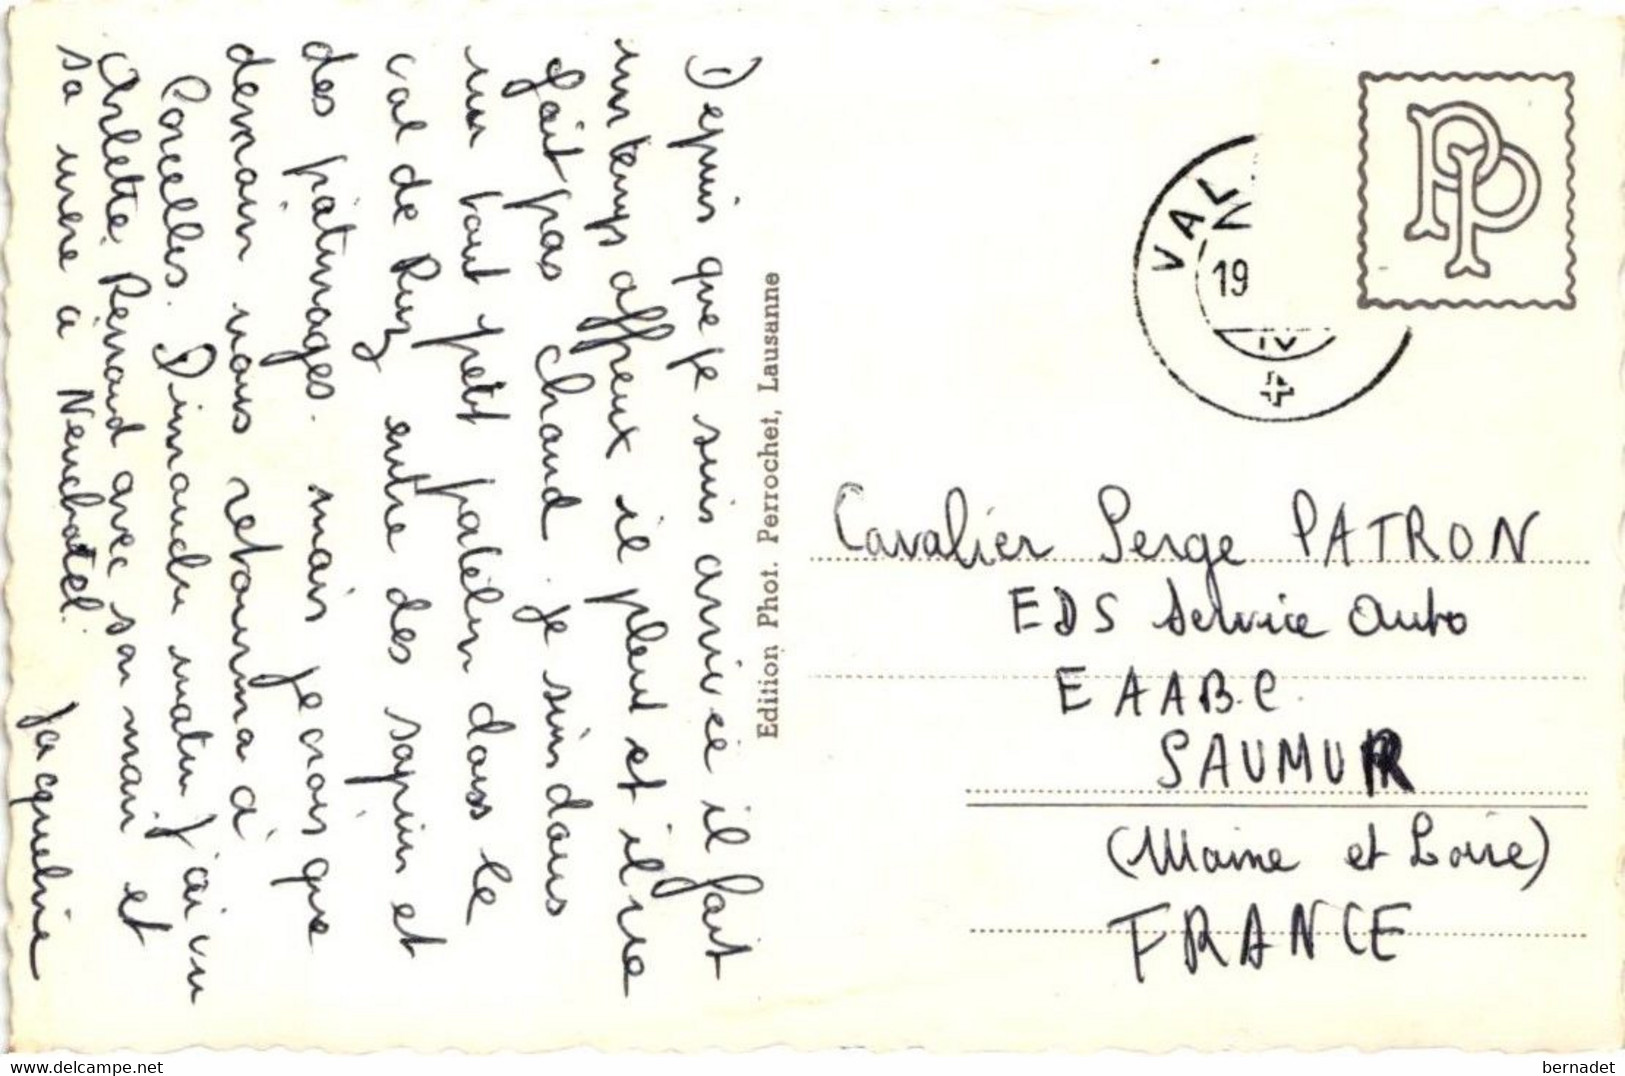 Depuis que je suis arrivée il fait
un temps affreux il pleut et il ne
fait pas chaud. je suis dans
un tout petit patelin dans le
val de Ruz entre des sapins et
des pâturages. mais je crois que
demain nous retournera à
Corcelles. Dimanche matin j'ai vu
Arlette Renaud avec son mari et
sa mère à Neuchatel.
Jacqueline
Edition Phot. Perrochet, Lausanne
VAL
19
IV
PP
Cavalier Serge PATRON
EDS Service Auto
E A A B.C.
SAUMUR
(Maine et Loire)
FRANCE
delcampe.net
bernadet